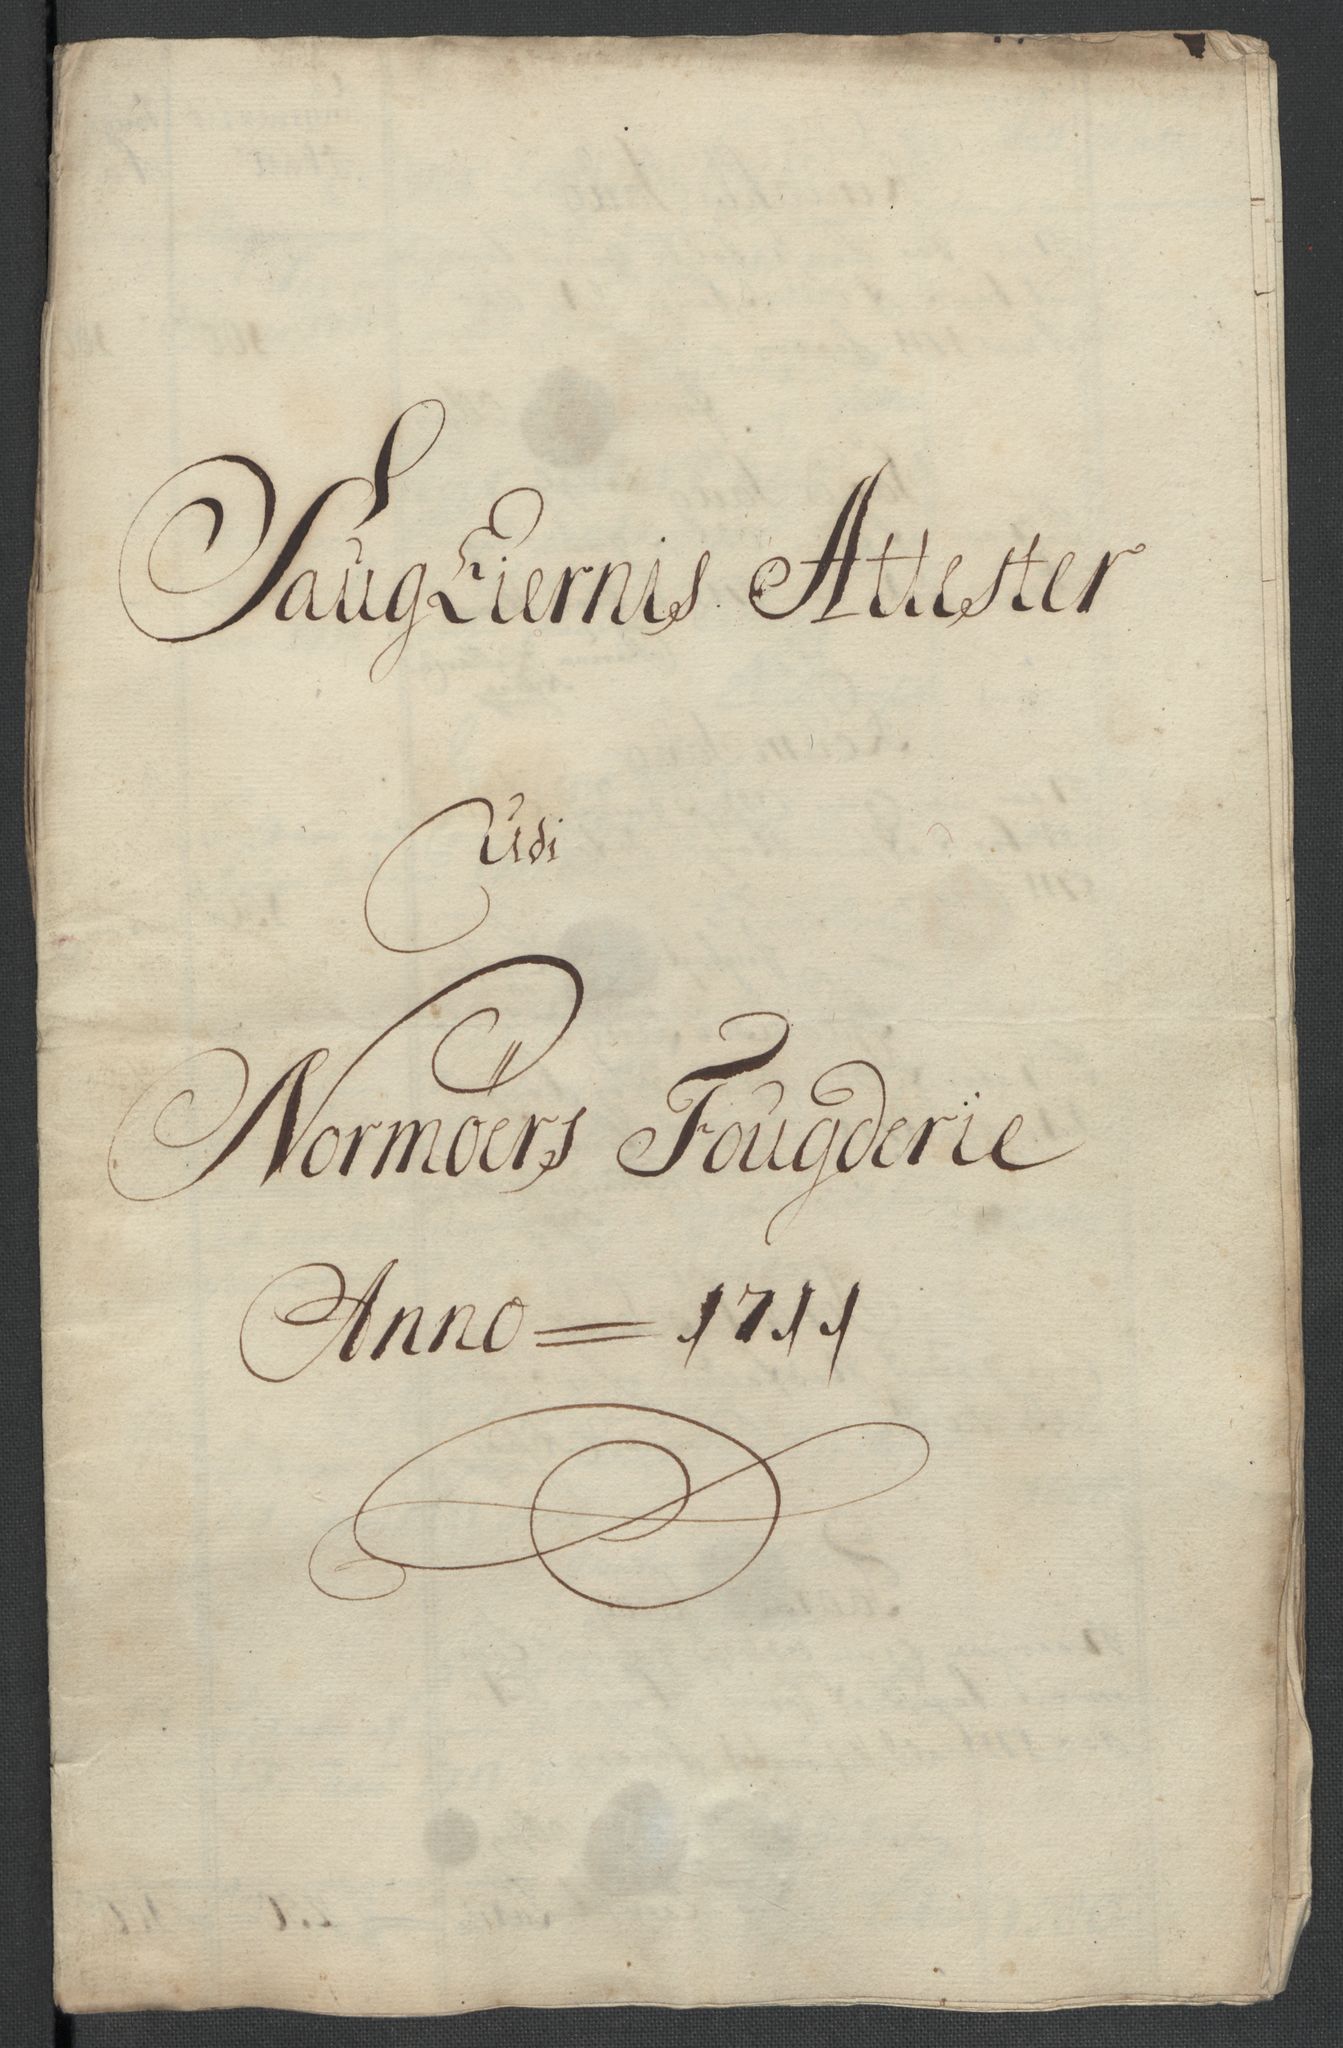 SaugEiernis Attester
Udi
Normöers Fougderie
Anno = 1711